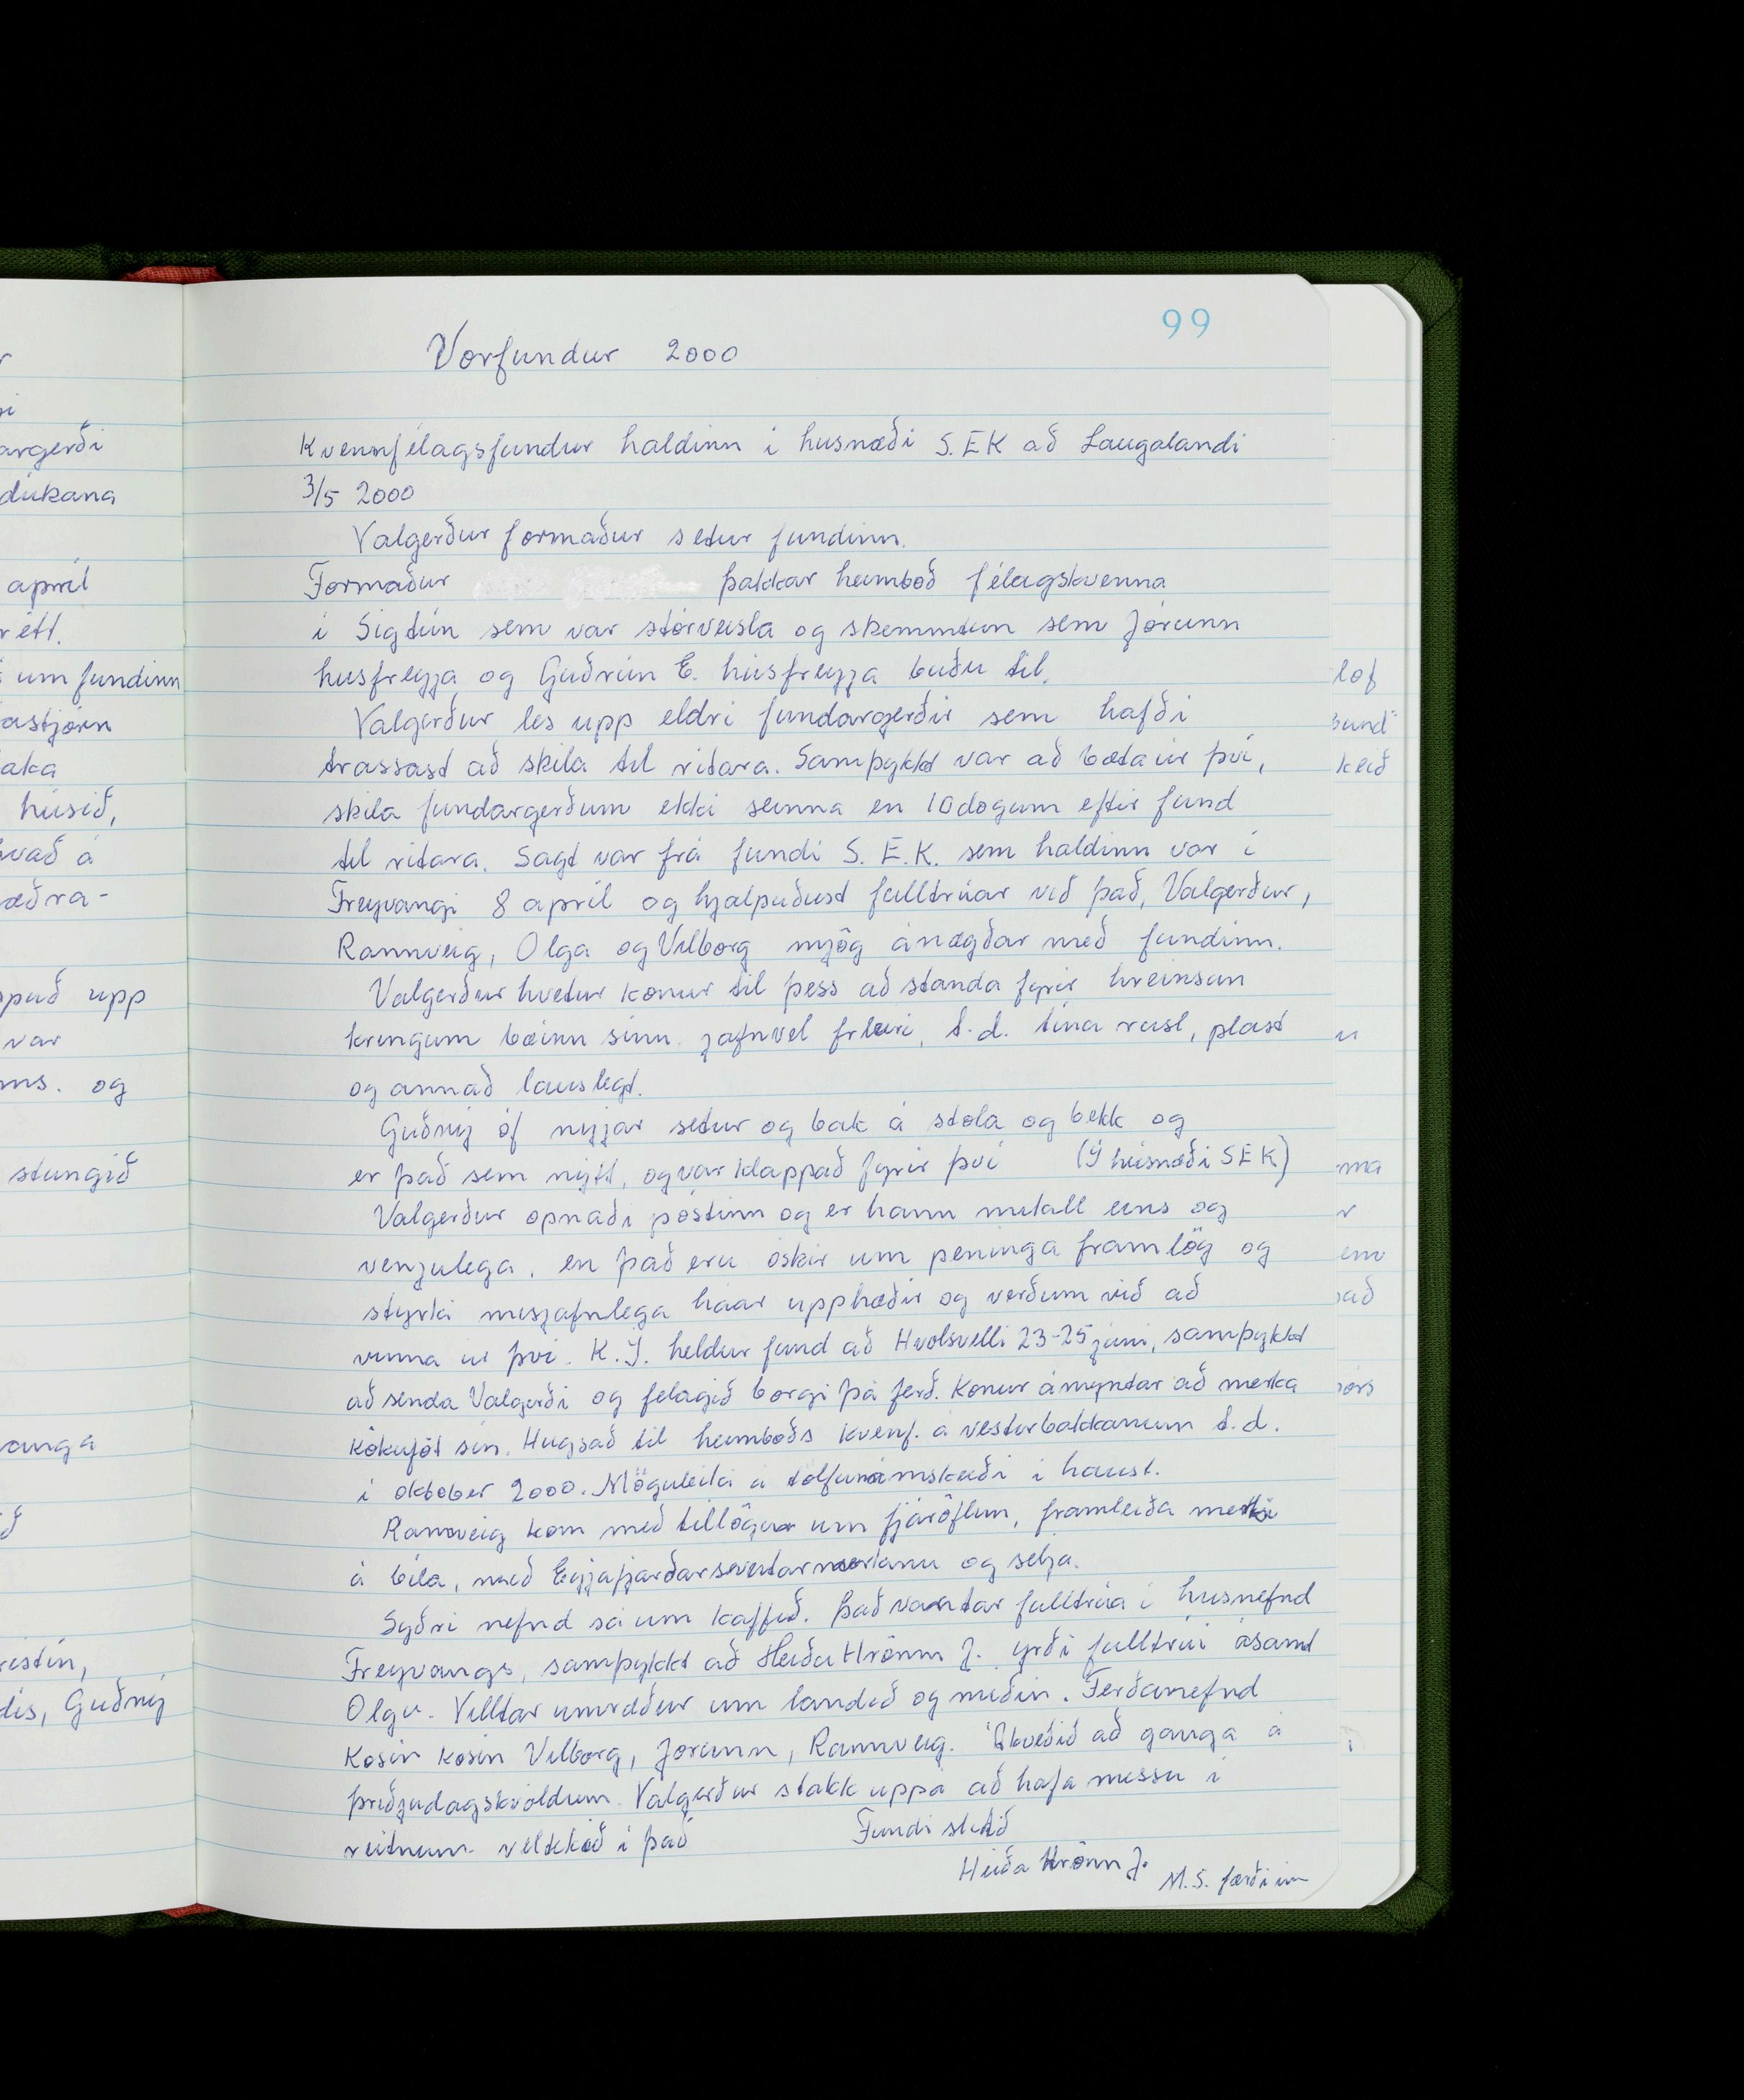 99
Vorfundur 2000
Kvennfélagsfundur haldinn i husnæði S.EK að Laugalandi
3/5 2000
Valgerður formaður setur fundinn.
Formaður þakkar heimboð félagskvenna
i Sigtún sem var stórveisla og skemmtun sem Jórunn
húsfreyja og Guðrún E. húsfreyja buðu til.
Valgerður les upp eldri fundargerðir sem hafði
trassast að skila til ritara. Samþykkt var að bæta úr því,
skila fundargerðum ekki seinna en 10 dogum eftir fund
til ritara. Sagt var frá fundi S.E.K. sem haldinn var i
Freyvangi 8 apríl og hjalpuðust fulltrúar við það, Valgerður,
Rannveig, Olga og Vilborg mjög ánægðar með fundinn.
Valgerður hvetur konur til þess að standa fyrir hreinsun
kringum bæinn sinn jafnvel fleiri, t.d. tína rusl, plast
og annað lauslegt.
Guðný óf nýjar setur og bak á stola og bekk og
er það sem nýtt, og var klappað fyrir því (Ý húsnæði SEK)
Valgerður opnaði póstinn og er hann mikall eins og
venjulega, en það eru óskir um peninga framlög og
styrki misjafnlega háar upphæðir og verðum við að
vinna úr því. K.Í. heldur fund að Hvolsvelli 23-25 júni, samþykkt
að senda Valgerði og felagið borgi þá ferð. Konur ámyntar að merka
kökuföt sín. Hugsað til heimboðs kvenf. á vesturbakkanum t.d.
i oktober 2000. Möguleiki á tölfunámskeiði i haust.
Rannveig kom með tillögur um fjáröflun, framleiða merki
á bíla, með Eyjafjarðarsveitarmerkinu og selja.
Syðri nefnd sá um kaffið. Það vantar fulltrúa í husnefnd
Freyvangs, samþykkt að Heiða Hrönn J. yrði fulltrúi ásamt
Olgu. Villtar umræður um landið og miðin. Ferðanefnd
kosin kosin Vilborg, Jorunn, Rannveig. Ákveðið að ganga á
þriðjudagskvöldum. Valgerður stakk uppá að hafa messu i
reitnum vel tekið i það Fundi slitið
Heiða Hrönn J.
M.S. færði inn
argerði
dúkana
apríl
rétt.
um fundinn
astjórn
aka
húsið,
hvað á
æðra-
ppað upp
var
ms. og
stungið
vanga
ristín,
dís, Guðný
lof
keið
nna
em